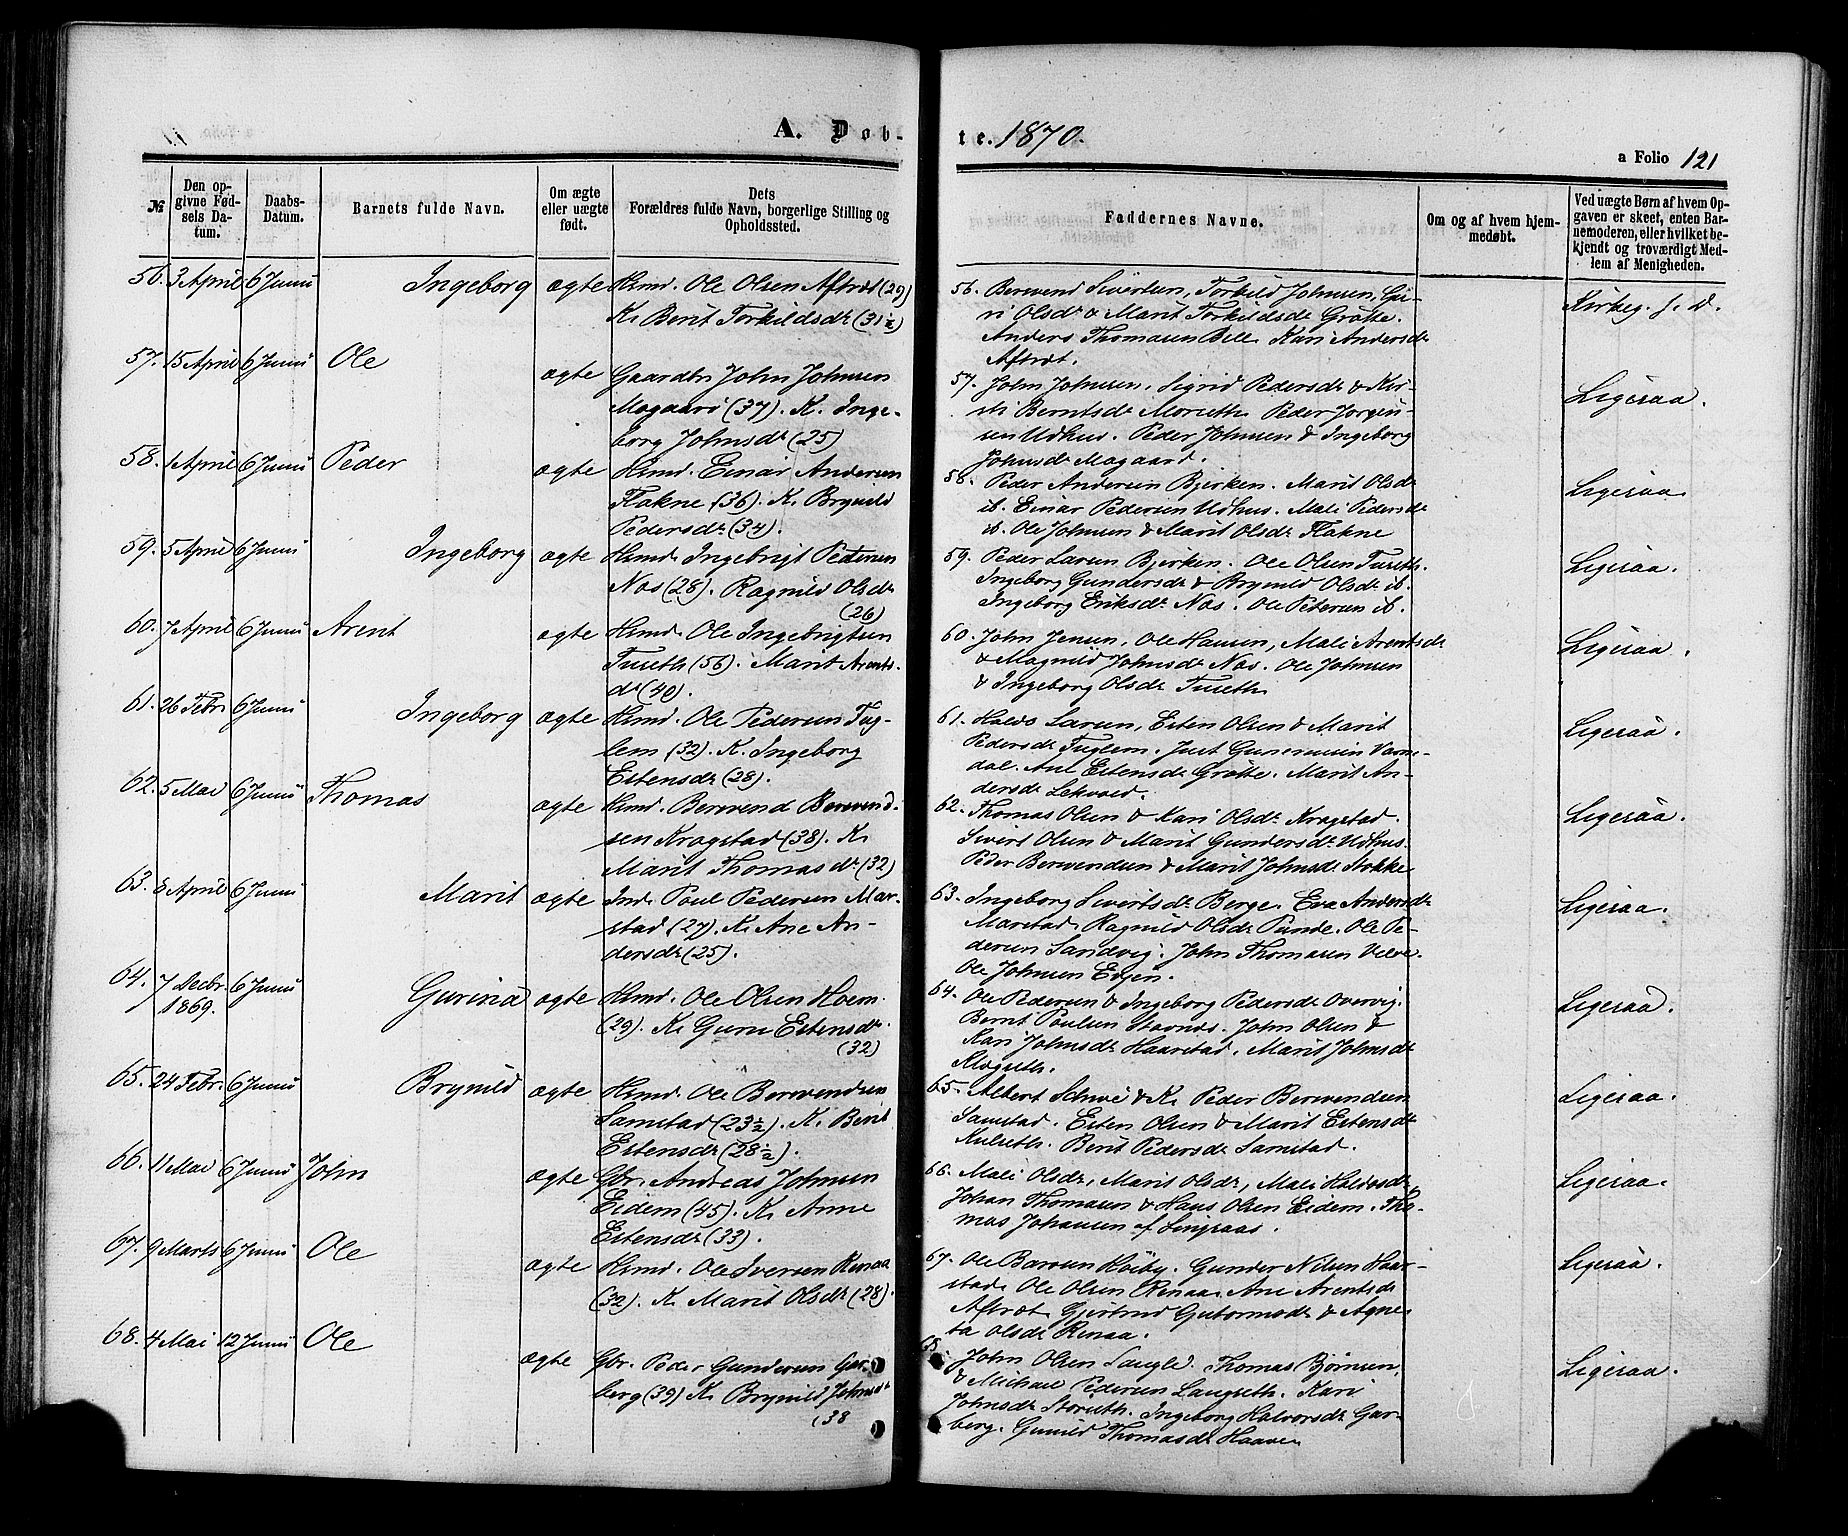 A. Døb-
te. 1870.
a Folio 121
№
Den op-
givne Fød-
sels Da-
tum.
Daabs-
Datum.
Barnets fulde Navn.
Om ægte
eller uægte
født.
Dets
Forældres fulde Navn, borgerlige Stilling og
Opholdssted.
Faddernes Navne.
Om og af hvem hjem-
medøbt.
Ved uægte Børn af hvem Op-
gaven er skeet, enten Bar-
nemoderen, eller hvilket be-
kjendt og troværdigt Med-
lem af Menigheden.
56. 3 April 6 Juni Ingeborg ægte Hsmd. Ole Olsen Aftret (29)
K. Berit Torkildsdr (31½)
57. 15 April 6 Juni Ole
ægte Gaardbr John Johnsen
Mogaard (37). K. Inge-
borg Johnsdr (25)
58. 1 April 6 Juni Peder
ægte Hsmd. Einar Andersen
Flakne (36). K. Brynild
Pedersdr (34).
59. 5 April 6 Juni Ingeborg ægte Hsmd. Ingebrigt Pedersen
Nos (28). Ragnild Olsdr
(26)
60. 7 April 6 Juni Arent
ægte Hsmd. Ole Ingebrigtsen
Tuseth (56). Marit Arents-
dr (40).
61. 26 Febr 6 Juni Ingeborg ægte Hsmd. Ole Pedersen Fug-
lem (32). K. Ingeborg
Estensdr (28).
62. 5 Mai 6 Juni Thomas
ægte Hsmd. Berevend Berevend-
sen Kragstad (38). K.
Marit Thomasdr (32)
63. 8 April 6 Juni Marit ægte Ind. Poul Pedersen Mar-
stad (27). K. Ane An-
dersdr (25).
64. 7 Decbr. 6 Juni Gurina ægte Hsmd. Ole Olsen Hoem.
1869. (29). K. Guru Estensdr.
(32)
65. 24 Febr. 6 Juni Brynild ægte Hsmd. Ole Berevendsen
Samstad (23½). K. Berit
Estensdr (28½).
66. 11 Mai 6 Juni John
ægte Gbr. Andreas Johnsen
Eidem (45). K. Anne
Estensdr (33).
67. 9 Marts 6 Juni Ole
ægte Hsmd. Ole Iversen Renaa
(32). K. Marit Olsdr (28).
68. 4 Mai 12 Juni Ole
ægte Gbr. Peder Gundersen Gar-
berg (39) K. Brynild Johnsdr
(38
56. Berevend Sivertsen, Torkild Johnsen, Gu-
ri Olsdr & Marit Torkildsdr Grøtte.
Anders Thomasen Bell. Kari Andersdr
Aftret.
Kirkeg. s. d.
57. John Johnsen, Sigrid Pedersdr & Kir-
sti Berntsdr Moruth. Peder Jørgen-
sen Udhus. Peder Johnsen & Ingeborg
Johnsdr Mogaard.
Ligesaa.
58. Peder Andersen Bjerken. Marit Olsdr
ib. Einar Pedersen Udhus. Mali Pedersdr
ib. Ole Johnsen & Marit Olsdr Flakne
Ligesaa
59. Peder Larsen Bjerken. Ole Olsen Tuseth.
Ingeborg Gundersdr & Brynild Olsdr ib.
Ingeborg Eriksdr Nos. Ole Petersen ib.
Ligesaa.
60. John Jensen, Ole Hansen, Mali Arentsdr
& Magnild Johnsdr Nos. Ole Johnsen
& Ingeborg Olsdr Tuseth
Ligesaa.
61. Haldo Larsen, Esten Olsen & Marit
Pedersdr Fuglem. Just Gunerusen Varm-
dal. Ane Estensdr Grøtte. Marit An-
dersdr Lekvold.
Ligesaa.
62. Thomas Olsen & Kari Olsdr Kragstad.
Sivert Olsen & Marit Gundersdr Udhus.
Peder Berevendsen & Marit Johnsdr Stokke
Ligesaa.
63. Ingeborg Sivertsdr Berge. Eva Andersdr
Marstad. Ragnild Olsdr Punde. Ole Pe-
dersen Sandvig. John Thomasen Velve.
Ole Johnsen Evjen.
Ligesaa.
64. Ole Pedersen & Ingeborg Pedersdr Overvig.
Bernt Poulsen Stavnes. John Olsen &
Kari Johnsdr Haarstad. Marit Johnsdr
Ligesaa.
65. Albert Schive & K. Peder Berevendsen
Samstad. Esten Olsen & Marit Estensdr
Kulseth. Berit Pedersdr Samstad.
Ligesaa.
66. Mali Olsdr, Marit Olsdr, Mali Haldosdr
Johan Thomasen & Hans Olsen Eidem. Tho-
mas Johansen af Lenjsaas.
Ligesaa.
67. Ole Larsen Høiby. Gunder Nilsen Haar-
stad. Ole Olsen Renaa. Ane Arentsdr
Aftret. Gjertrud Gutormsdr & Agne-
ta Olsdr Renaa.
Ligesaa.
68. John Olsen Laugle. Thomas Bjørnsen
& Michael Pedersen Langseth. Kari
Johnsdr Storeth. Ingeborg Halvorsdr Gar-
berg. Gunild Thomasdr Haaven
Ligesaa.